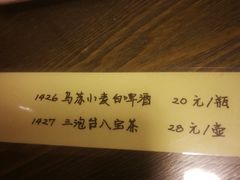 1426 乌苏小麦白啤酒 20元/瓶
1427 三泡台八宝茶 28元/壶